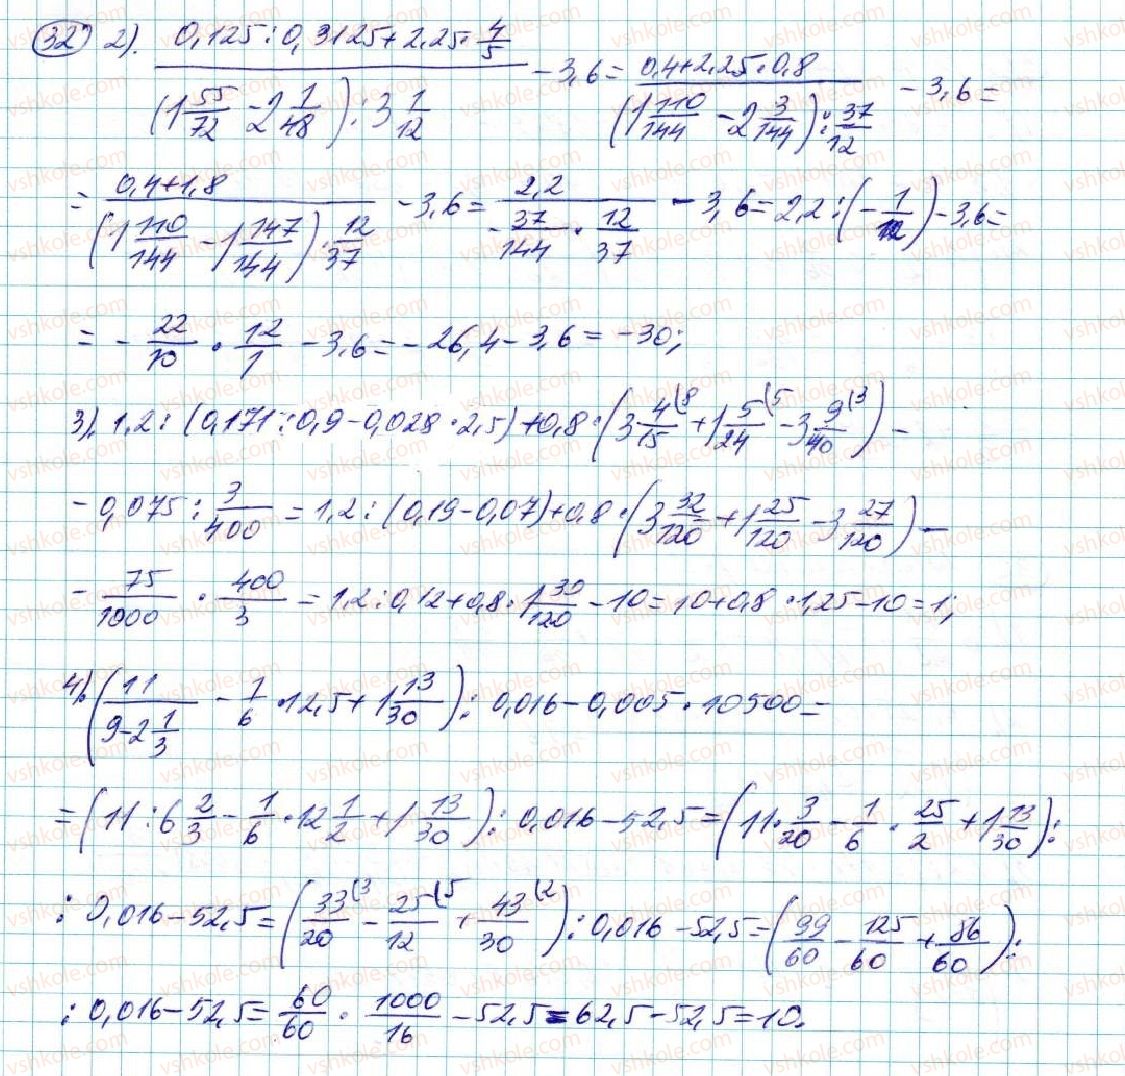 32 2). (0,125:0,3125+2,25·4/5)/((1 55/72 - 2 1/48):3 1/12) - 3,6 = (0,4+2,25·0,8)/((1 110/144 - 2 3/144):37/12) - 3,6 =
= (0,4+1,8)/((1 110/144 - 1 147/144)·12/37) - 3,6 = 2,2/(-37/144·12/37) - 3,6 = 2,2:(-1/12) - 3,6 =
= - 22/10 · 12/1 - 3,6 = - 26,4 - 3,6 = -30;
3). 1,2:(0,171:0,9-0,028·2,5)+0,8·(3 4/15 (8 + 1 5/24 (5 - 3 9/40 (3) -
- 0,075 : 3/400 = 1,2:(0,19-0,07)+0,8·(3 32/120 + 1 25/120 - 3 27/120) -
- 75/1000 · 400/3 = 1,2:0,12+0,8·1 30/120 - 10 = 10+0,8·1,25-10 = 1;
4). (11/(9-2 1/3) - 1/6·12,5 + 1 13/30) : 0,016 - 0,005·10500 =
= (11:6 2/3 - 1/6·12 1/2 + 1 13/30) : 0,016 - 52,5 = (11·3/20 - 1/6·25/2 + 1 13/30) :
: 0,016 - 52,5 = (33/20 (3 - 25/12 (5 + 43/30 (2) : 0,016 - 52,5 = (99/60 - 125/60 + 86/60) :
: 0,016 - 52,5 = 60/60 · 1000/16 - 52,5 = 62,5 - 52,5 = 10.